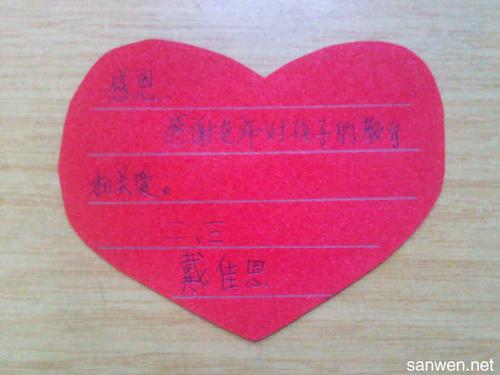 感恩：
感谢老师对孩子的教育
和关爱。
二、三
戴佳恩
sanwen.net